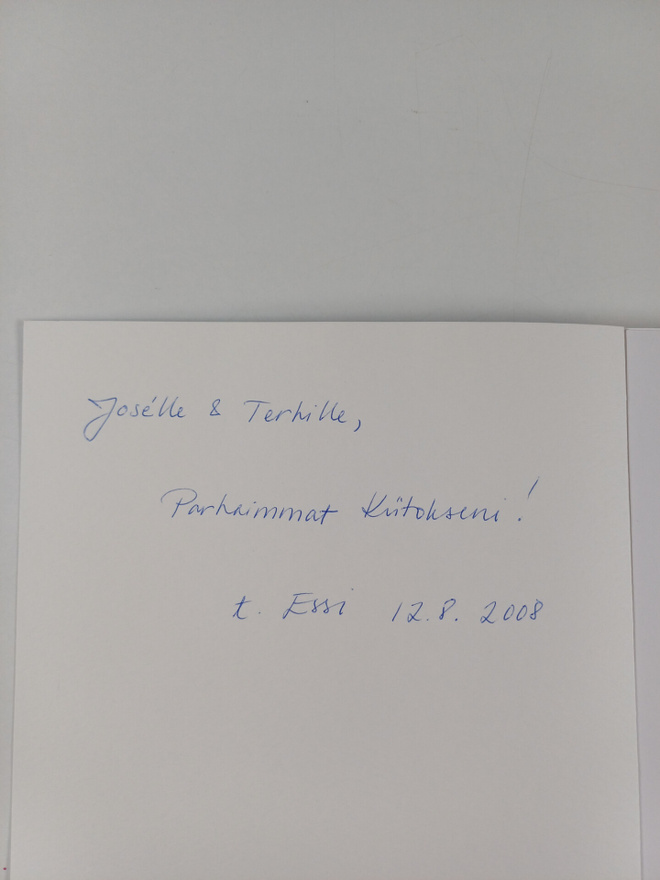 Josélle & Terhille,
Parhaimmat Kiitokseni!
t. Essi 12.8. 2008